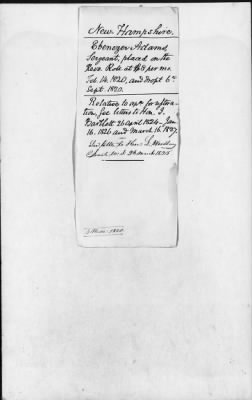 New Hampshire.
Ebenezer Adams
Sergeant, placed on the
Rev. Role at $8 per mo.
Feb. 14. 1820, and dropt 6th
Sept. 1820.
Relative to apn for restora-
tion, see letters to Hon. I.
Bartlett 26 April 1824 - Jan
16. 1826 and March 16. 1827.
letter to Hon L. Woodbury
1820